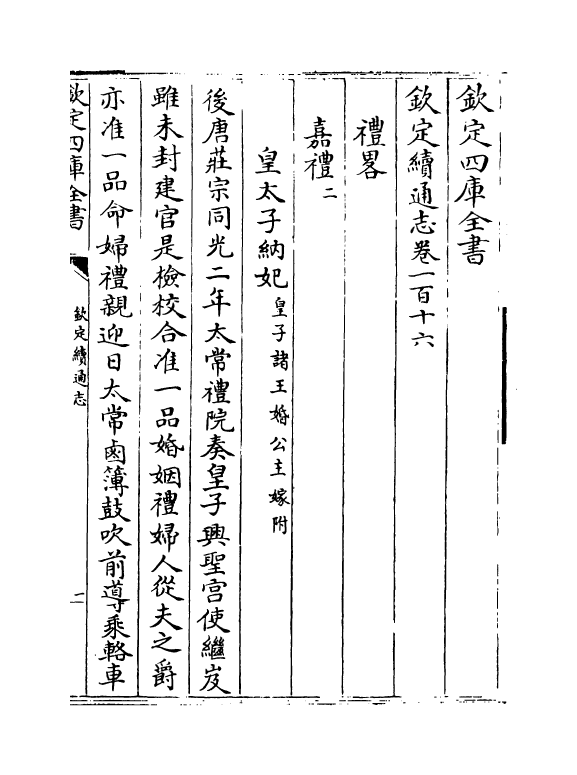 欽定四庫全書
欽定續通志卷一百十六
禮畧
嘉禮二
皇太子納妃皇子諸王婚公主嫁附
後唐莊宗同光二年太常禮院奏皇子興聖宫使繼岌
雖未封建官是檢校合准一品婚姻禮婦人從夫之爵
亦准一品命婦禮親迎日太常鹵簿鼓吹前導乘輅車
欽定四庫全書
欽定續通志
二